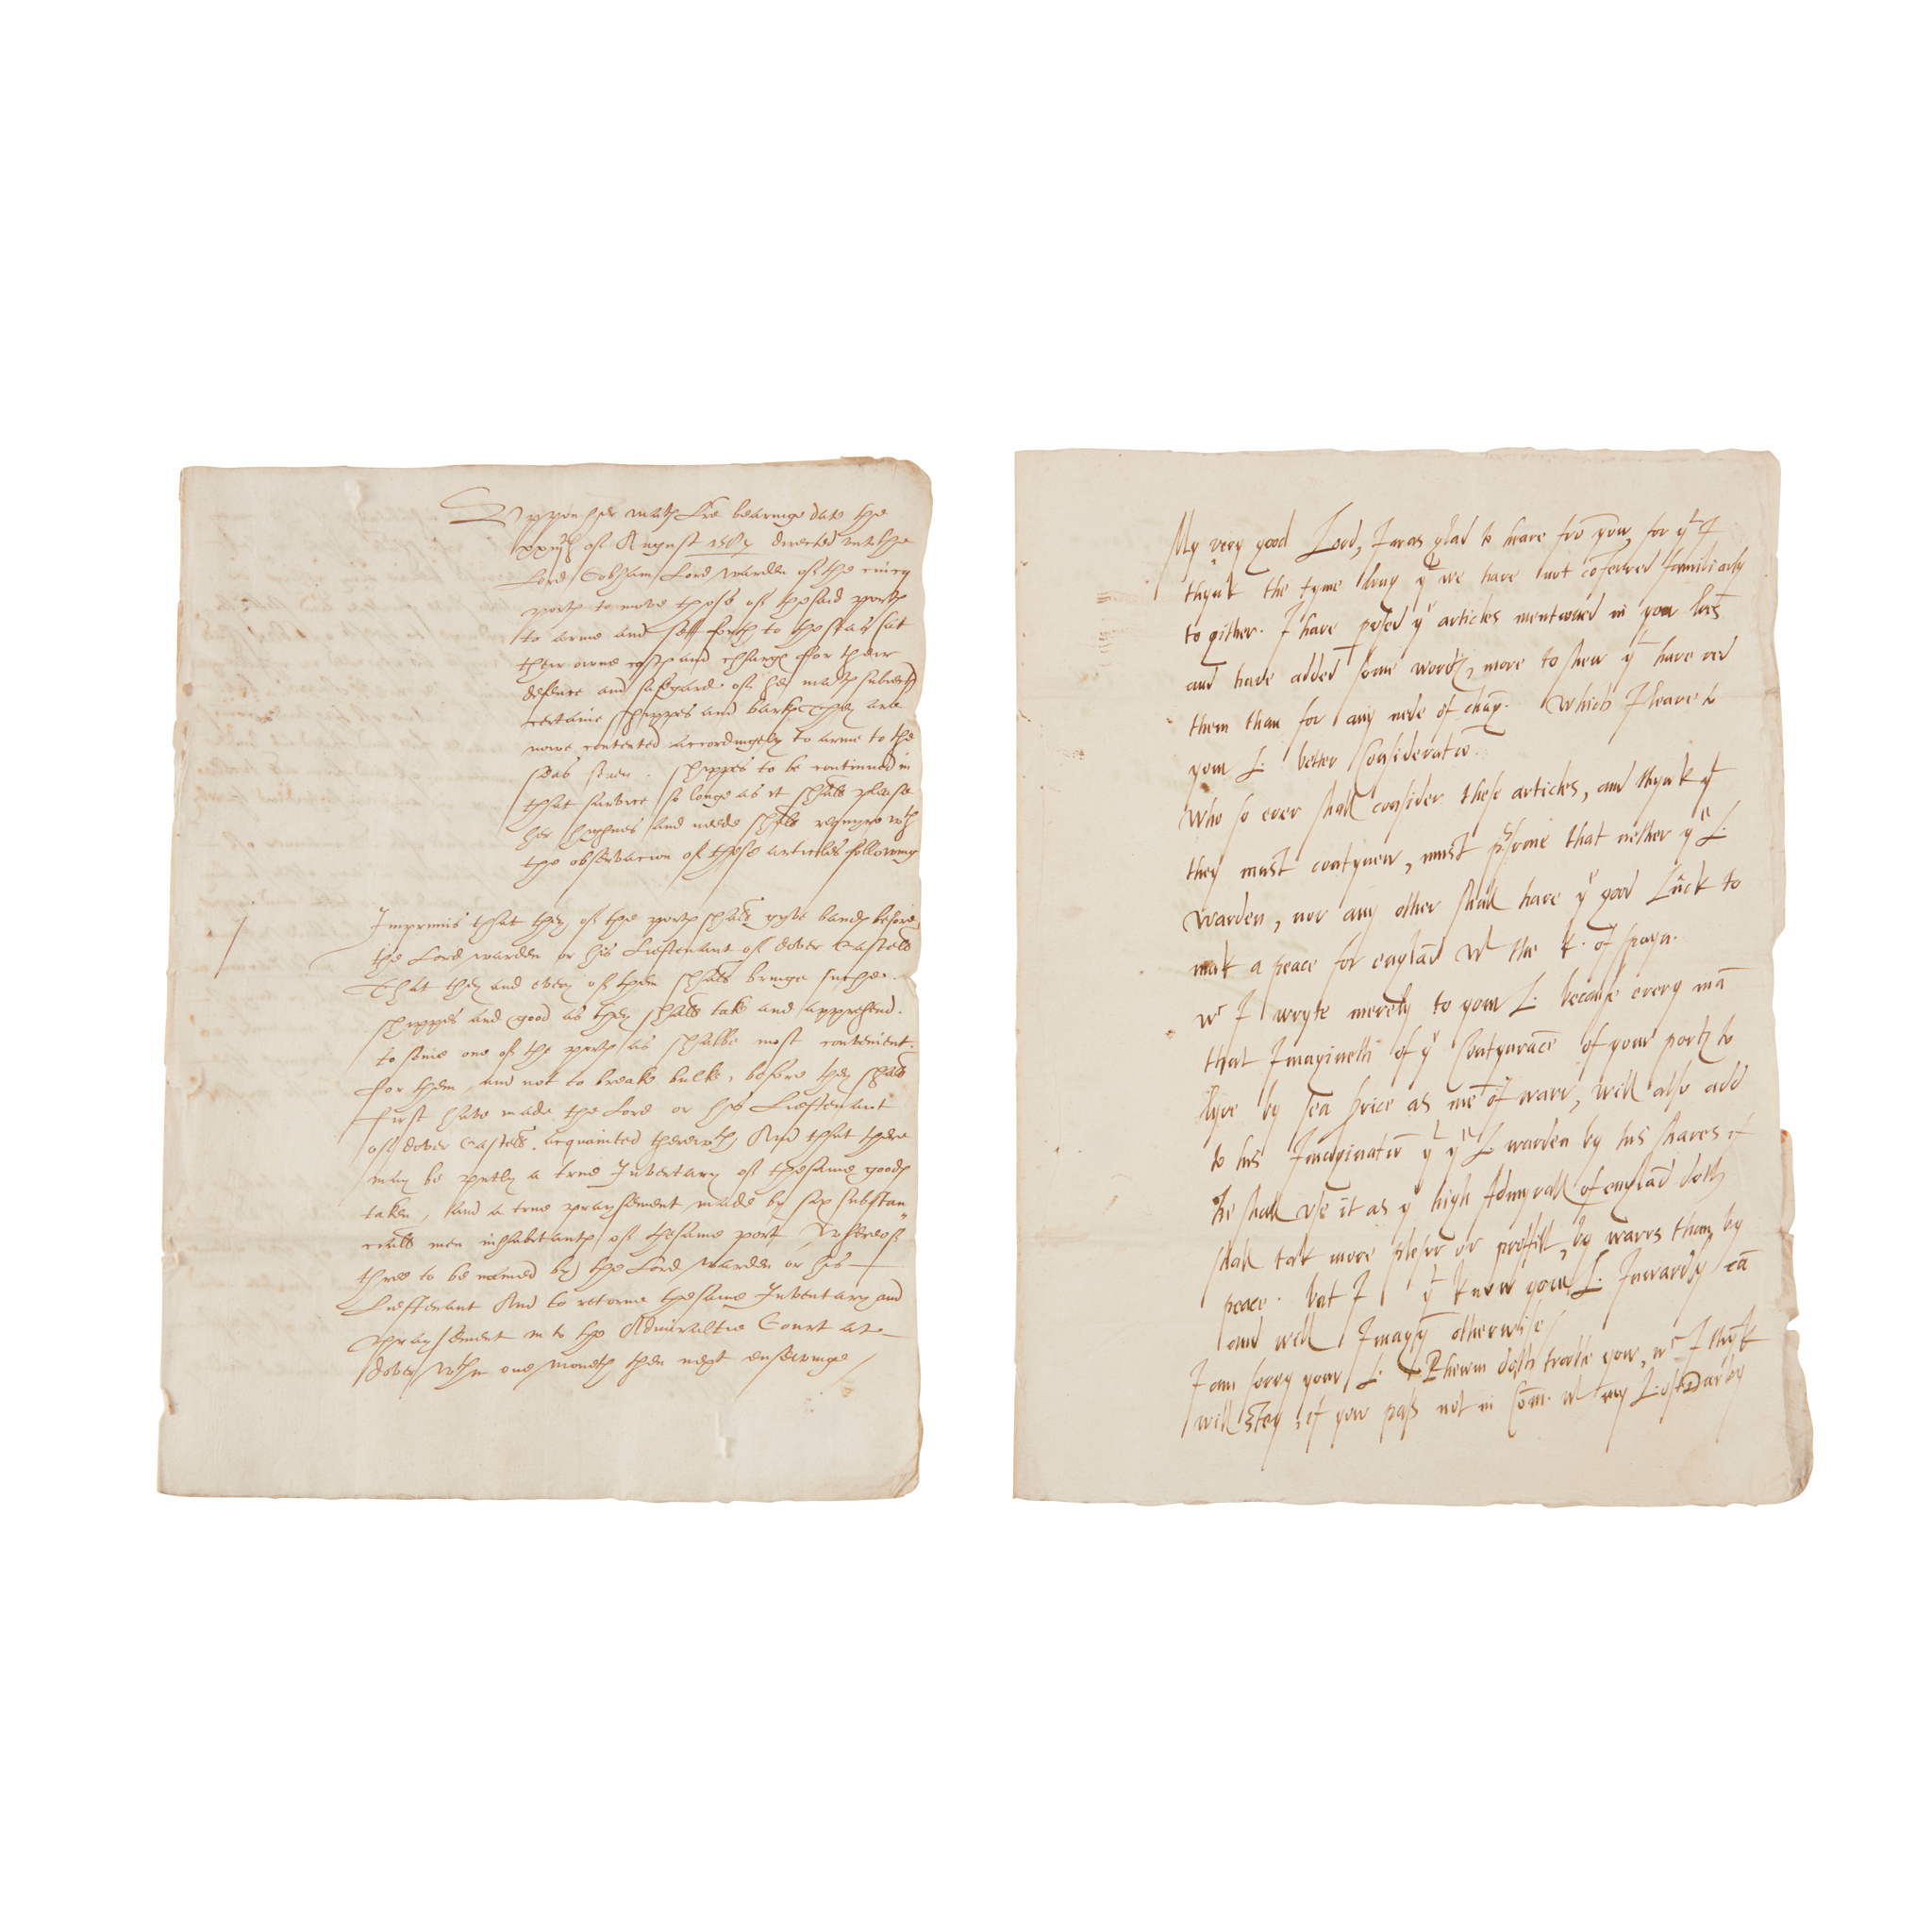 Uppon her Matꝭ Lre bearinge date the
xxiijth of August 1587 directed unto the
Lord Cobham Lord warden of the cincq
portꝭ to move those of the said portꝭ
to arme and sett forth to the seas (at
their owne costꝭ and charges for their
defence and safegard of her matꝭ subiectꝭ
certaine shippes and barkꝭ They are
nowe contented accordingely to arme to the
seas seven . shippes to be continued in
that service so longe as it shall please
her highnes and neede shall require wth
the observacion of these articles following
1
Imprimis that they of the portꝭ shall gyve bandꝭ before
the Lord warden or his Lieftenant of dover Castell
That they and every of them shall bringe suche .
shippes and good as they shall take and apprehend .
to some one of the portꝭ as shalbe most convenient .
for them and not to breake bulke, before they shall
first have made the Lord or his Lieftenant
of dover Castell . acquainted therewth, And that there
may be pntly a true Inventary of the same goodꝭ
taken, and a true praysement made by six substan„
ciall men inhabitantꝭ of the same port, Whereof
three to be named by the Lord Warden or his —
Lieftenant And to retorne the same Inventary and
praysement in to the Admiraltie Court at —
dover wthin one moneth then next ensewinge /
My very good Lord, I was glad to heare frō yow, for yt I
thynk the tyme long yt we have not cōferred familiarly
to gither. I have pused ye articles mentioned in your lres
and have added some wordꝭ, more to shew yt I have red
them than for any nede of chang. Which I leave to
your L. better Consideratiō.
Who so ever shall consider these articles, and thynk yt
they must contynew, must
that nether ye L.
Warden, nor any other shall have ye good Luck to
mak a peace for englād wt the k. of spayn.
wch I wryte merely to your L. because every mā
that Imagineth of ye Contynuāce of your portꝭ to
lyve by sea
as mē of warr, will also add
to his Imaginatiō yt ye L. warden by his shares if
he shall use it as ye high Admyrall of englād doth
shall tak more plesur or proffitt, by warrs than by
peace. but I yt know your L. Inwardly cā
and will Imagyn otherwise
I am sorry your L. Rhewm doth troble yow, wch I thynk
will stey, if yow pass not in Com. wt my L. of Darby